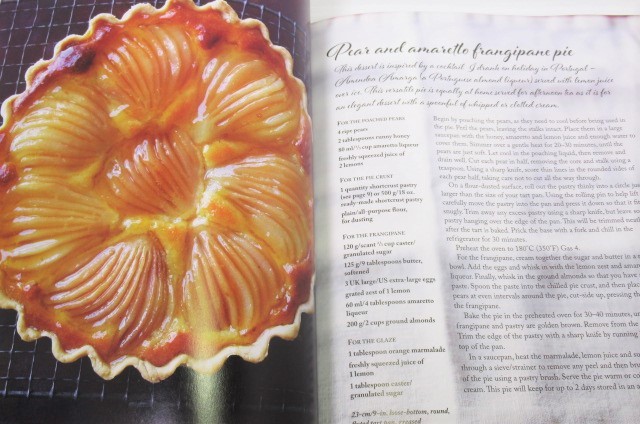 Pear and amaretto frangipane pie
This dessert is inspired by a cocktail I drank on holiday in Portugal –
Amendoa Amarga (a Portuguese almond liqueur) served with lemon juice
over ice. This versatile pie is equally at home served for afternoon tea as it is for
an elegant dessert with a spoonful of whipped or clotted cream.
FOR THE POACHED PEARS
4 ripe pears
2 tablespoons runny honey
60 ml/¼ cup amaretto liqueur
freshly squeezed juice of
2 lemons
FOR THE PIE CRUST
1 quantity shortcrust pastry
(see page 9) or 500 g/18 oz.
ready-made shortcrust pastry
plain/all-purpose flour,
for dusting
FOR THE FRANGIPANE
120 g/scant ⅔ cup caster/
granulated sugar
125 g/9 tablespoons butter,
softened
3 UK large/US extra-large eggs
grated zest of 1 lemon
60 ml/4 tablespoons amaretto
liqueur
200 g/2 cups ground almonds
FOR THE GLAZE
1 tablespoon orange marmalade
freshly squeezed juice of
1 lemon
1 tablespoon caster/
granulated sugar
23-cm/9-in. loose-bottom, round,
fluted tart pan, greased
Begin by poaching the pears, as they need to cool before being used in
the pie. Peel the pears, leaving the stalks intact. Place them in a large
saucepan with the honey, amaretto and lemon juice and enough water to
cover them. Simmer over a gentle heat for 20–30 minutes, until the
pears are just soft. Let cool in the poaching liquid, then remove and
drain well. Cut each pear in half, removing the core and stalk using a
teaspoon. Using a sharp knife, score thin lines in the rounded sides of
each pear half, taking care not to cut all the way through.
On a flour-dusted surface, roll out the pastry thinly into a circle just
larger than the size of your tart pan. Using the rolling pin to help lift
carefully move the pastry into the pan and press it down so that it fits
snugly. Trim away any excess pastry using a sharp knife, but leave some
pastry hanging over the edge of the pan. This will be trimmed
after the tart is baked. Prick the base with a fork and chill in the
refrigerator for 30 minutes.
Preheat the oven to 180°C (350°F) Gas 4.
For the frangipane, cream together the sugar and butter in a
bowl. Add the eggs and whisk in with the lemon zest and
liqueur. Finally, whisk in the ground almonds so that you have
paste. Spoon the paste into the chilled pie crust, and then place
pears at even intervals around the pie, cut-side up, pressing
the frangipane.
Bake the pie in the preheated oven for 30–40 minutes, until
frangipane and pastry are golden brown. Remove from the
Trim the edge of the pastry with a sharp knife by running
top of the pan.
In a saucepan, heat the marmalade, lemon juice and sugar
through a sieve/strainer to remove any peel and then brush
of the pie using a pastry brush. Serve the pie warm or cold
cream. This pie will keep for up to 2 days stored in an